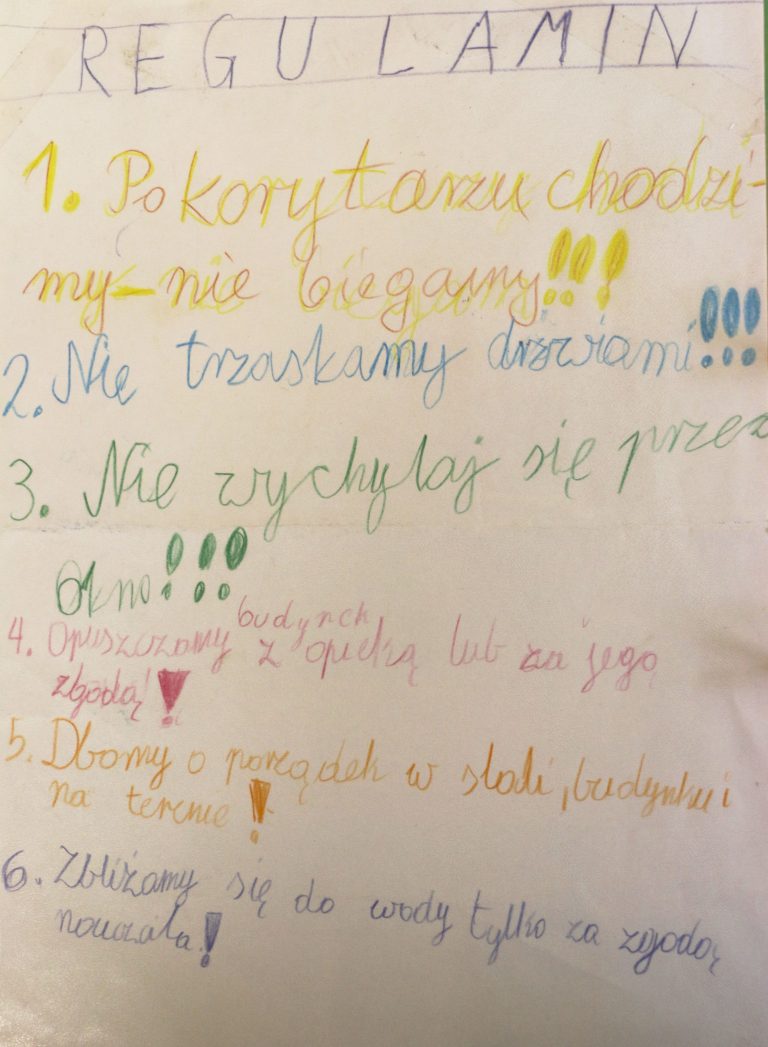 REGULAMIN
1. Po korytarzu chodzi-
my-nie biegamy!!!
2. Nie trzaskamy drzwiami!!!
3. Nie wychylaj się przez
okno!!!
4. Opuszczamy budynek z opieką lub za jego
zgodą!
5. Dbamy o porządek w sali, budynku i
na terenie!
6. Zbliżamy się do wody tylko za zgodą
!